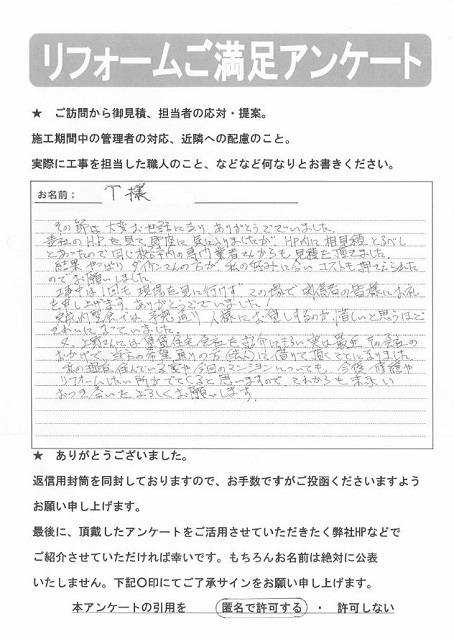 リフォームご満足アンケート
★ ご訪問から御見積、担当者の応対・提案。
施工期間中の管理者の対応、近隣への配慮のこと。
実際に工事を担当した職人のこと、などなど何なりとお書きください。
お名前： T様
その節は大変お世話になり ありがとうございました。
貴社のHPを見て最初に気に入りましたが、HP内に相見積とるべし
とあったので同じ板橋内の専門業者さんからも見積を頂きました。
結果 やっぱり ダインさんの方が 私の好みに合い コストも押えられた
のでお願いしました。
工事中は1回も現場を見に行けず この場で関係者の皆様にお礼
を申し上げます。ありがとうございました！
室内は予想通り 人様にお貸しするのが惜しいと思うほど
きれいになっていました。
又、上野さんには賃貸住宅会社を紹介してもらい 実は最近 その会社の
おかげで、当方の希望通りの方（法人）に借りて頂くことになりました。
私の現在住んでいる家や今回のマンションについても、今後 修理や
リフォームしたい所がでてくると思いますので、これからも末永い
おつき合いをよろしくお願いします。
★ ありがとうございました。
返信用封筒を同封しておりますので、お手数ですがご投函くださいますよう
お願い申し上げます。
最後に、頂戴したアンケートをご活用させていただきたく弊社HPなどで
ご紹介させていただければ幸いです。もちろんお名前は絶対に公表
いたしません。下記〇印にてご了承サインをお願い申し上げます。
本アンケートの引用を 匿名で許可する ・ 許可しない